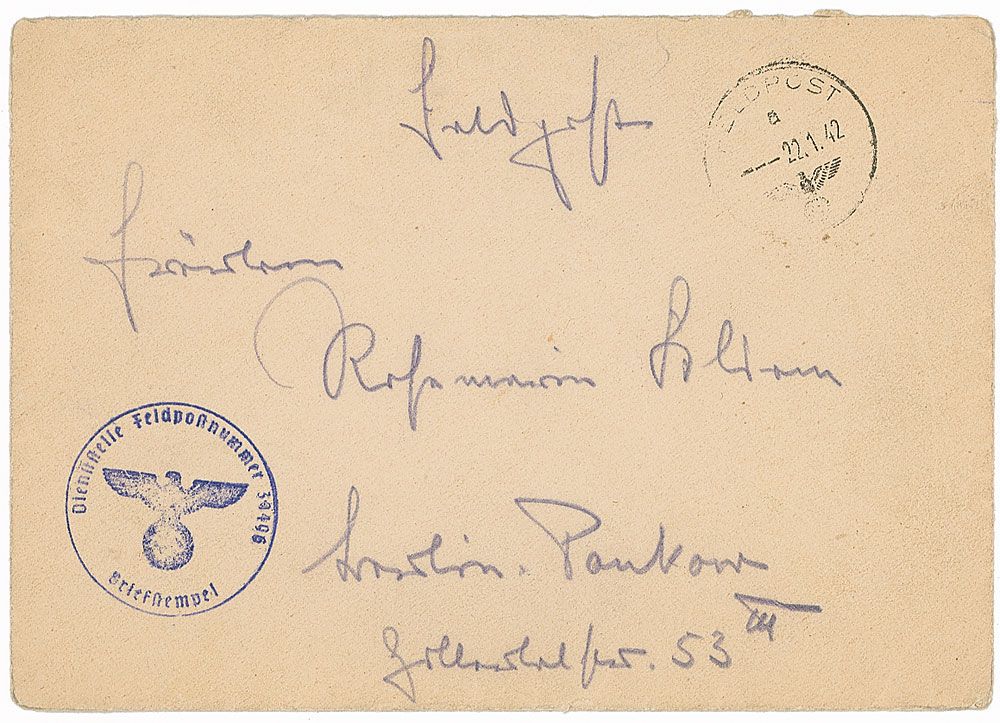 Feldpost
FELDPOST
a
22.1.42
Fräulein
Rosemarie Soldan
Dienststelle Feldpostnummer 34496
Briefstempel
Berlin-Pankow
Zillertalstr. 53 III